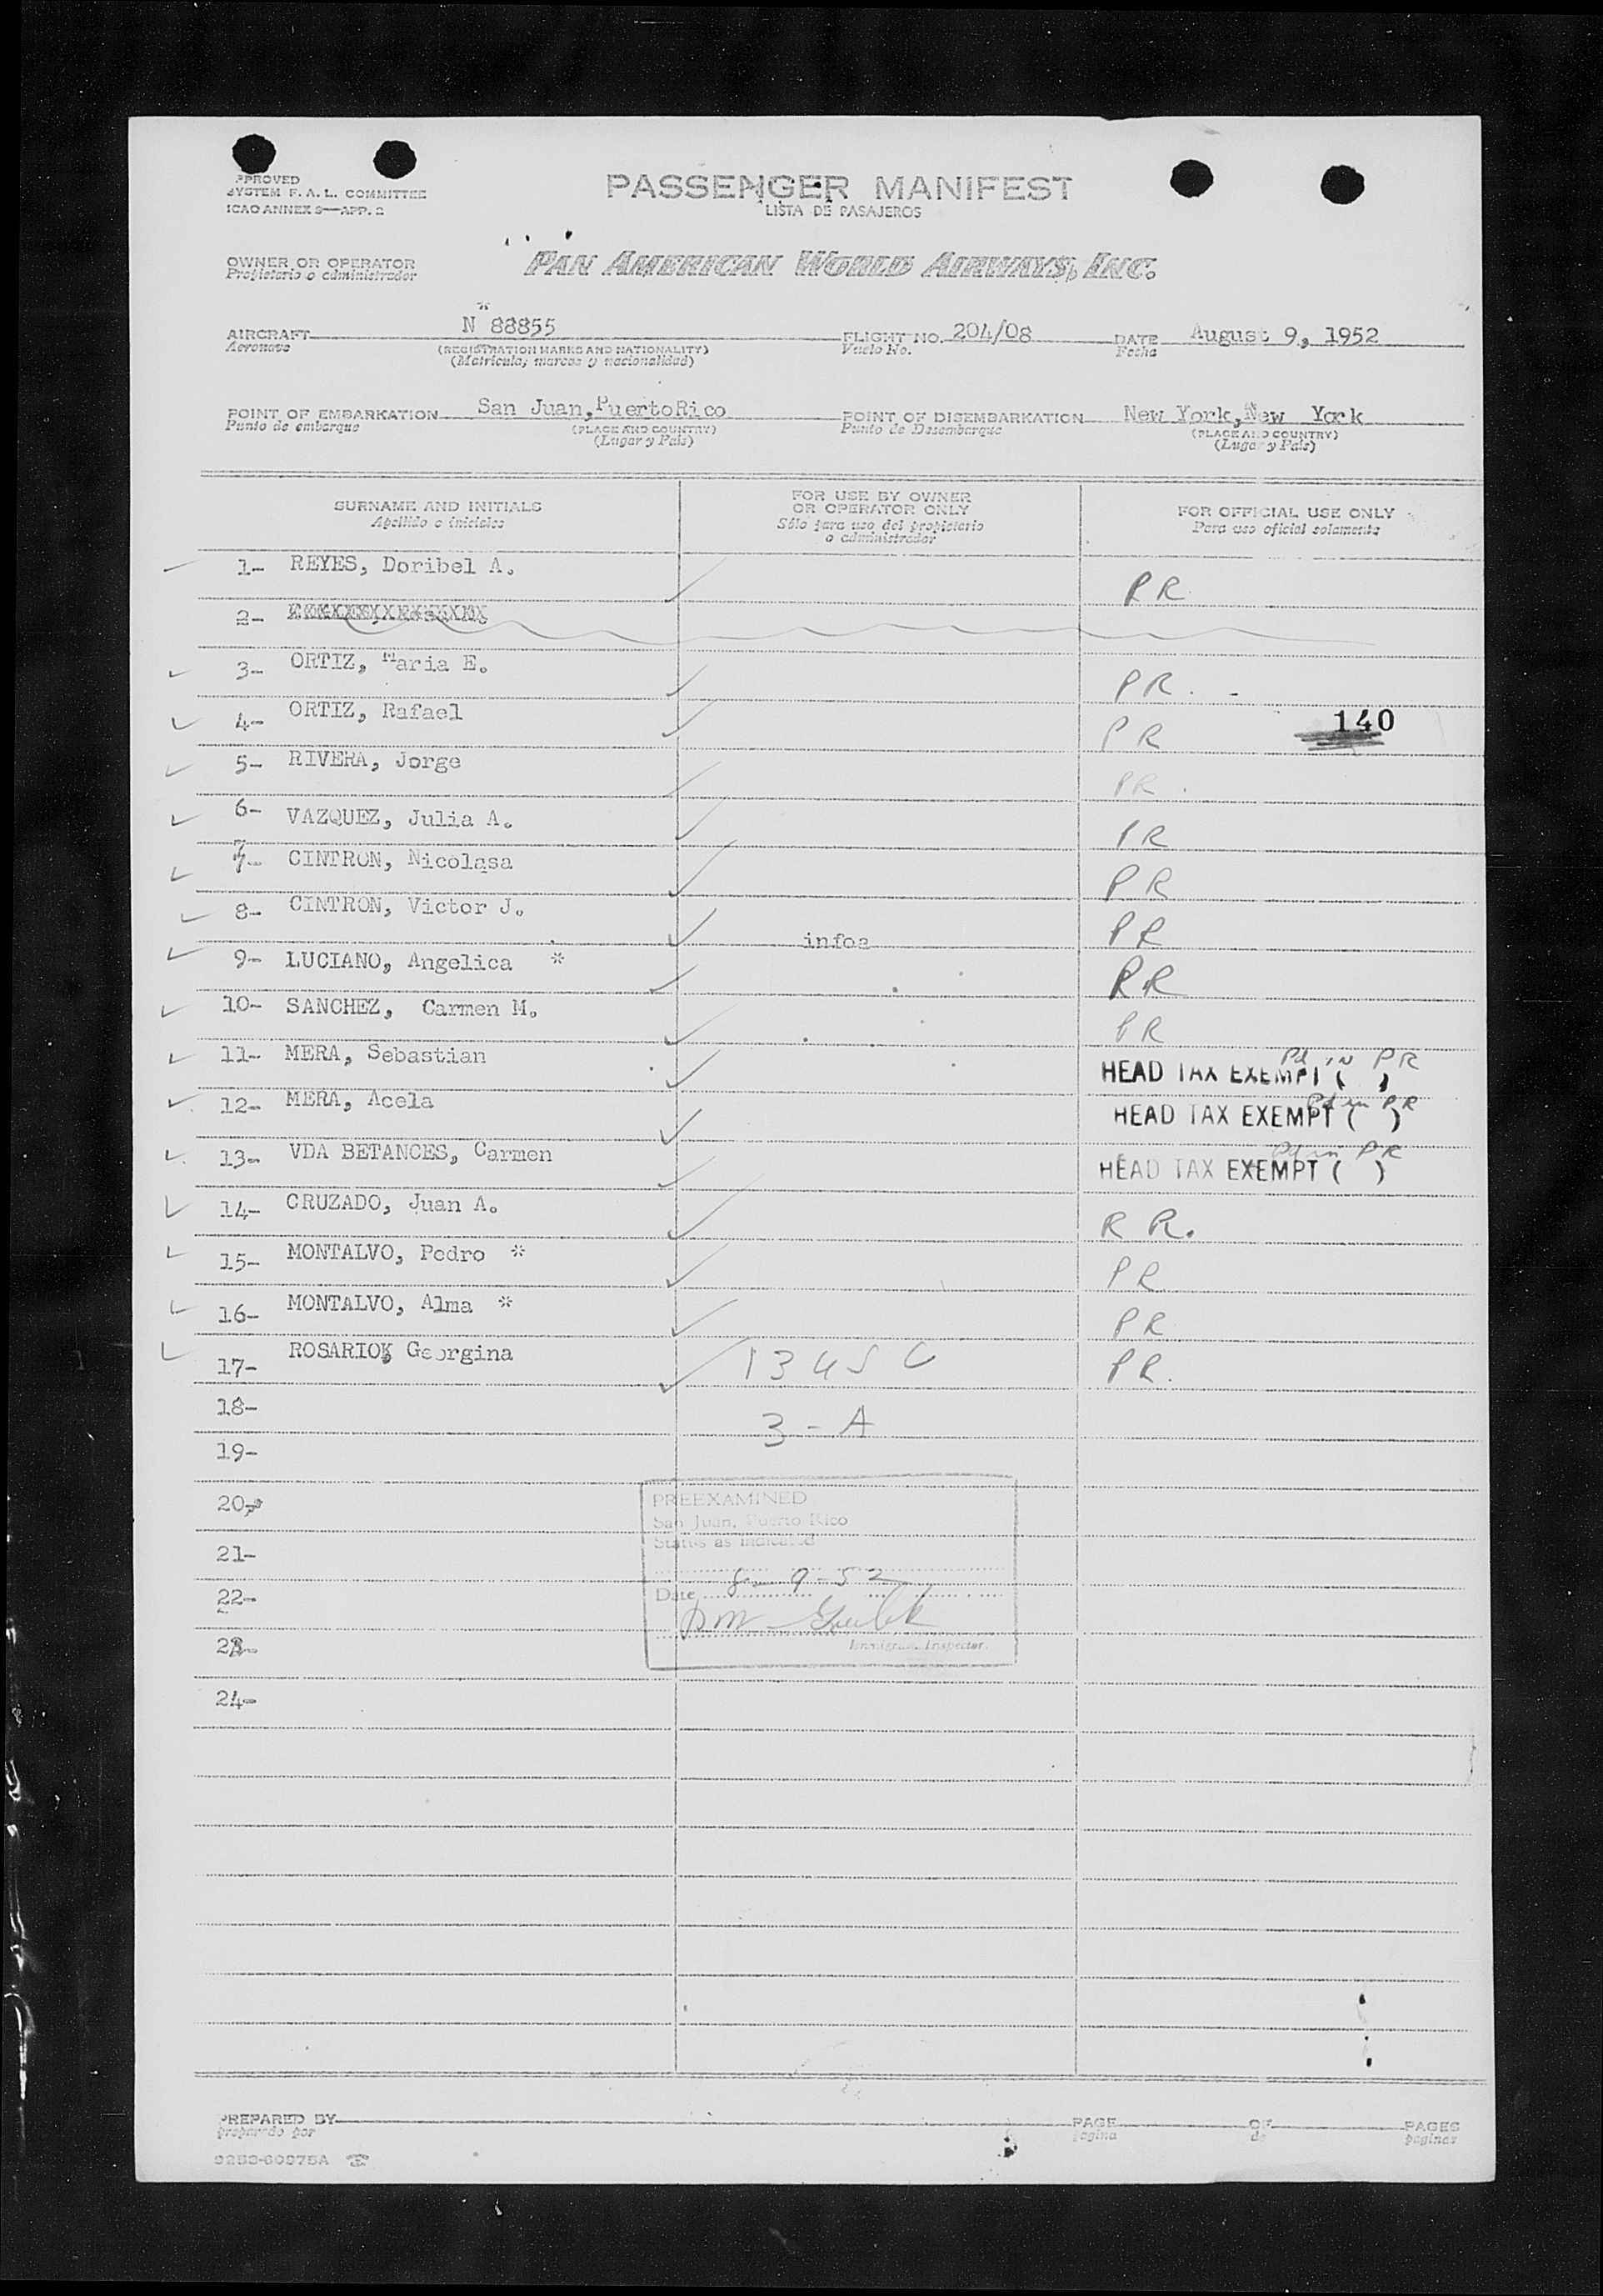 APPROVED
SYSTEM F. A. L. COMMITTEE
ICAO ANNEX 9—APP. 2
PASSENGER MANIFEST
LISTA DE PASAJEROS
OWNER OR OPERATOR
Propietario o administrador
PAN AMERICAN WORLD AIRWAYS, INC.
AIRCRAFT N 88855 FLIGHT NO. 204/08 DATE August 9, 1952
Aeronave (REGISTRATION MARKS AND NATIONALITY) Vuelo No. Fecha
(Matricula, marcas y nacionalidad)
POINT OF EMBARKATION San Juan, PuertoRico POINT OF DISEMBARKATION New York, New York
Punto de embarque (PLACE AND COUNTRY) Punto de Desembarque (PLACE AND COUNTRY)
(Lugar y Pais) (Lugar y Pais)
SURNAME AND INITIALS
Apellido e iniciales
FOR USE BY OWNER
OR OPERATOR ONLY
Sólo para uso del propietario
o administrador
FOR OFFICIAL USE ONLY
Para uso oficial solamente
1- REYES, Doribel A. PR
2-
3- ORTIZ, Maria E. PR.
4- ORTIZ, Rafael PR 140
5- RIVERA, Jorge PR.
6- VAZQUEZ, Julia A. PR
7- CINTRON, Nicolasa PR
8- CINTRON, Victor J. PR
infoa
9- LUCIANO, Angelica * PR
10- SANCHEZ, Carmen M. PR
11- MERA, Sebastian Pd in PR
HEAD TAX EXEMPT ( )
12- MERA, Acela Pd in PR
HEAD TAX EXEMPT ( )
13- VDA BETANCES, Carmen Pd in PR
HEAD TAX EXEMPT ( )
14- CRUZADO, Juan A. PR.
15- MONTALVO, Pedro * PR
16- MONTALVO, Alma * PR
17- ROSARIO, Georgina 1345 C PR.
18- 3-A
19-
20-
21-
22-
23-
24-
PREEXAMINED
San Juan, Puerto Rico
Status as indicated
Date 8-9-52
Immigrant Inspector.
PREPARED BY PAGE OF PAGES
preparado por pagina de paginas
9253-60975A